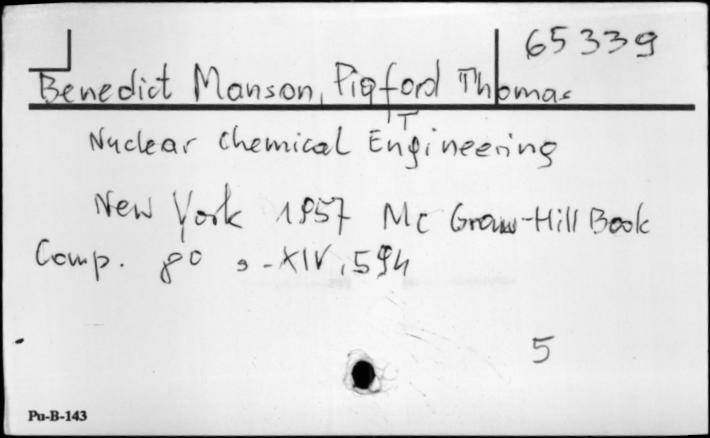 65339
Benedict Manson, Pigford Thomas
T
Nuclear Chemical Engineering
New York 1957 Mc Graw-Hill Book
Comp. 8° s. XIV, 594
5
Pu-B-143